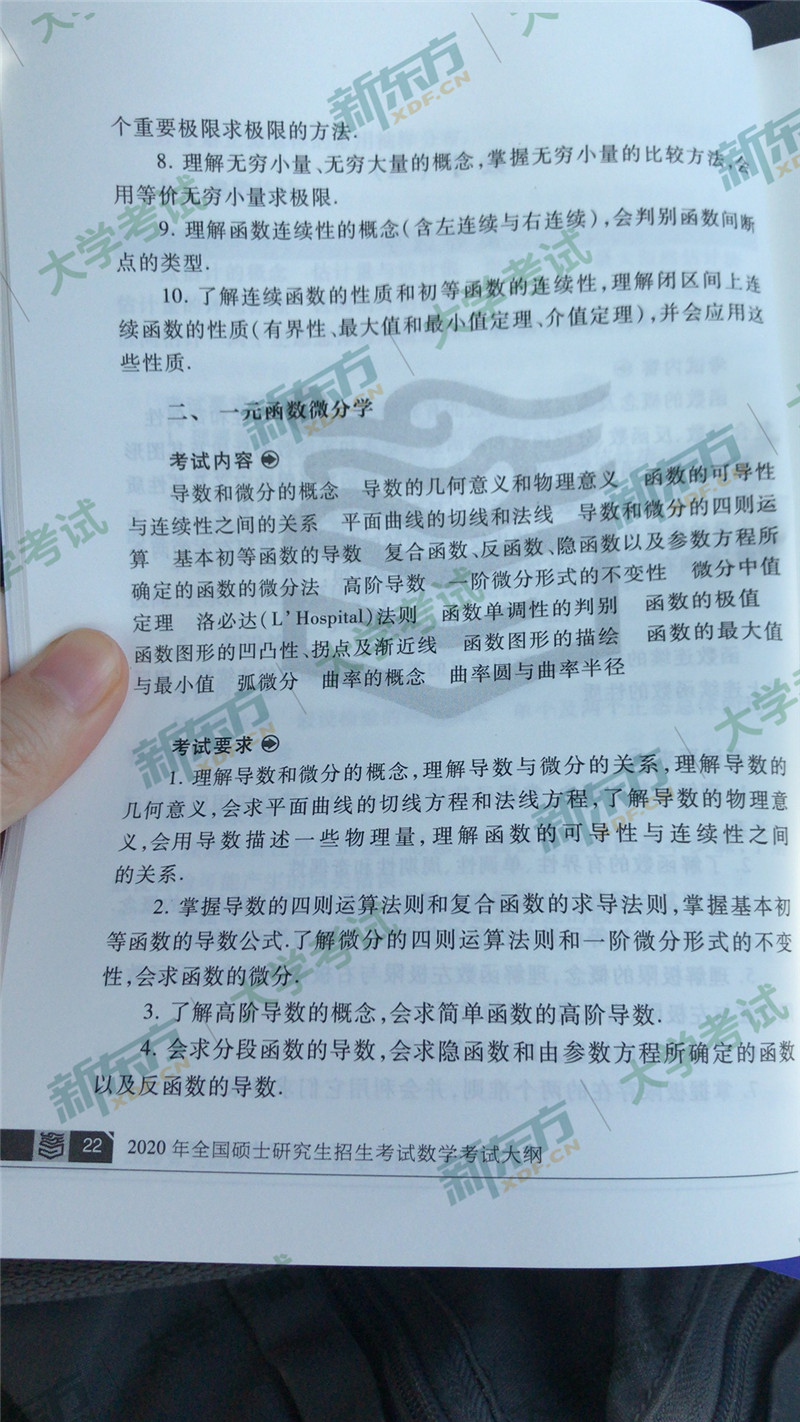 个重要极限求极限的方法.
8. 理解无穷小量、无穷大量的概念,掌握无穷小量的比较方法,会
用等价无穷小量求极限.
9. 理解函数连续性的概念(含左连续与右连续),会判别函数间断
点的类型.
10. 了解连续函数的性质和初等函数的连续性,理解闭区间上连
续函数的性质(有界性、最大值和最小值定理、介值定理),并会应用这
些性质.
二、一元函数微分学
考试内容
导数和微分的概念 导数的几何意义和物理意义 函数的可导性
与连续性之间的关系 平面曲线的切线和法线 导数和微分的四则运
算 基本初等函数的导数 复合函数、反函数、隐函数以及参数方程所
确定的函数的微分法 高阶导数 一阶微分形式的不变性 微分中值
定理 洛必达(L'Hospital)法则 函数单调性的判别 函数的极值
函数图形的凹凸性、拐点及渐近线 函数图形的描绘 函数的最大值
与最小值 弧微分 曲率的概念 曲率圆与曲率半径
考试要求
1. 理解导数和微分的概念,理解导数与微分的关系,理解导数的
几何意义,会求平面曲线的切线方程和法线方程,了解导数的物理意
义,会用导数描述一些物理量,理解函数的可导性与连续性之间
的关系.
2. 掌握导数的四则运算法则和复合函数的求导法则,掌握基本初
等函数的导数公式.了解微分的四则运算法则和一阶微分形式的不变
性,会求函数的微分.
3. 了解高阶导数的概念,会求简单函数的高阶导数.
4. 会求分段函数的导数,会求隐函数和由参数方程所确定的函数
以及反函数的导数.
22 2020年全国硕士研究生招生考试数学考试大纲
新东方 XDF.CN
大学考试